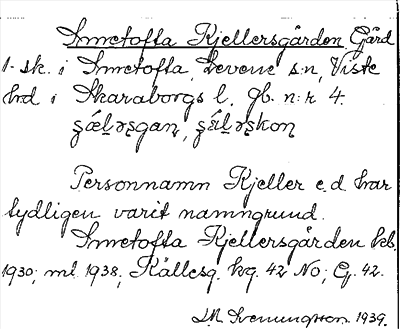 Smetofta Kjellersgården Gård
1 sk. i Smetofta, Levene s:n, Viste
hrd i Skaraborgs l. Gb. n:r 4.
Personnamn Kjeller e. d. har
tydligen varit namngrund.
Smetofta Kjellersgården kb.
1930; ml. 1938; Källesg. kg. 42 NO; Ej. 42.
Sveningson 1939.